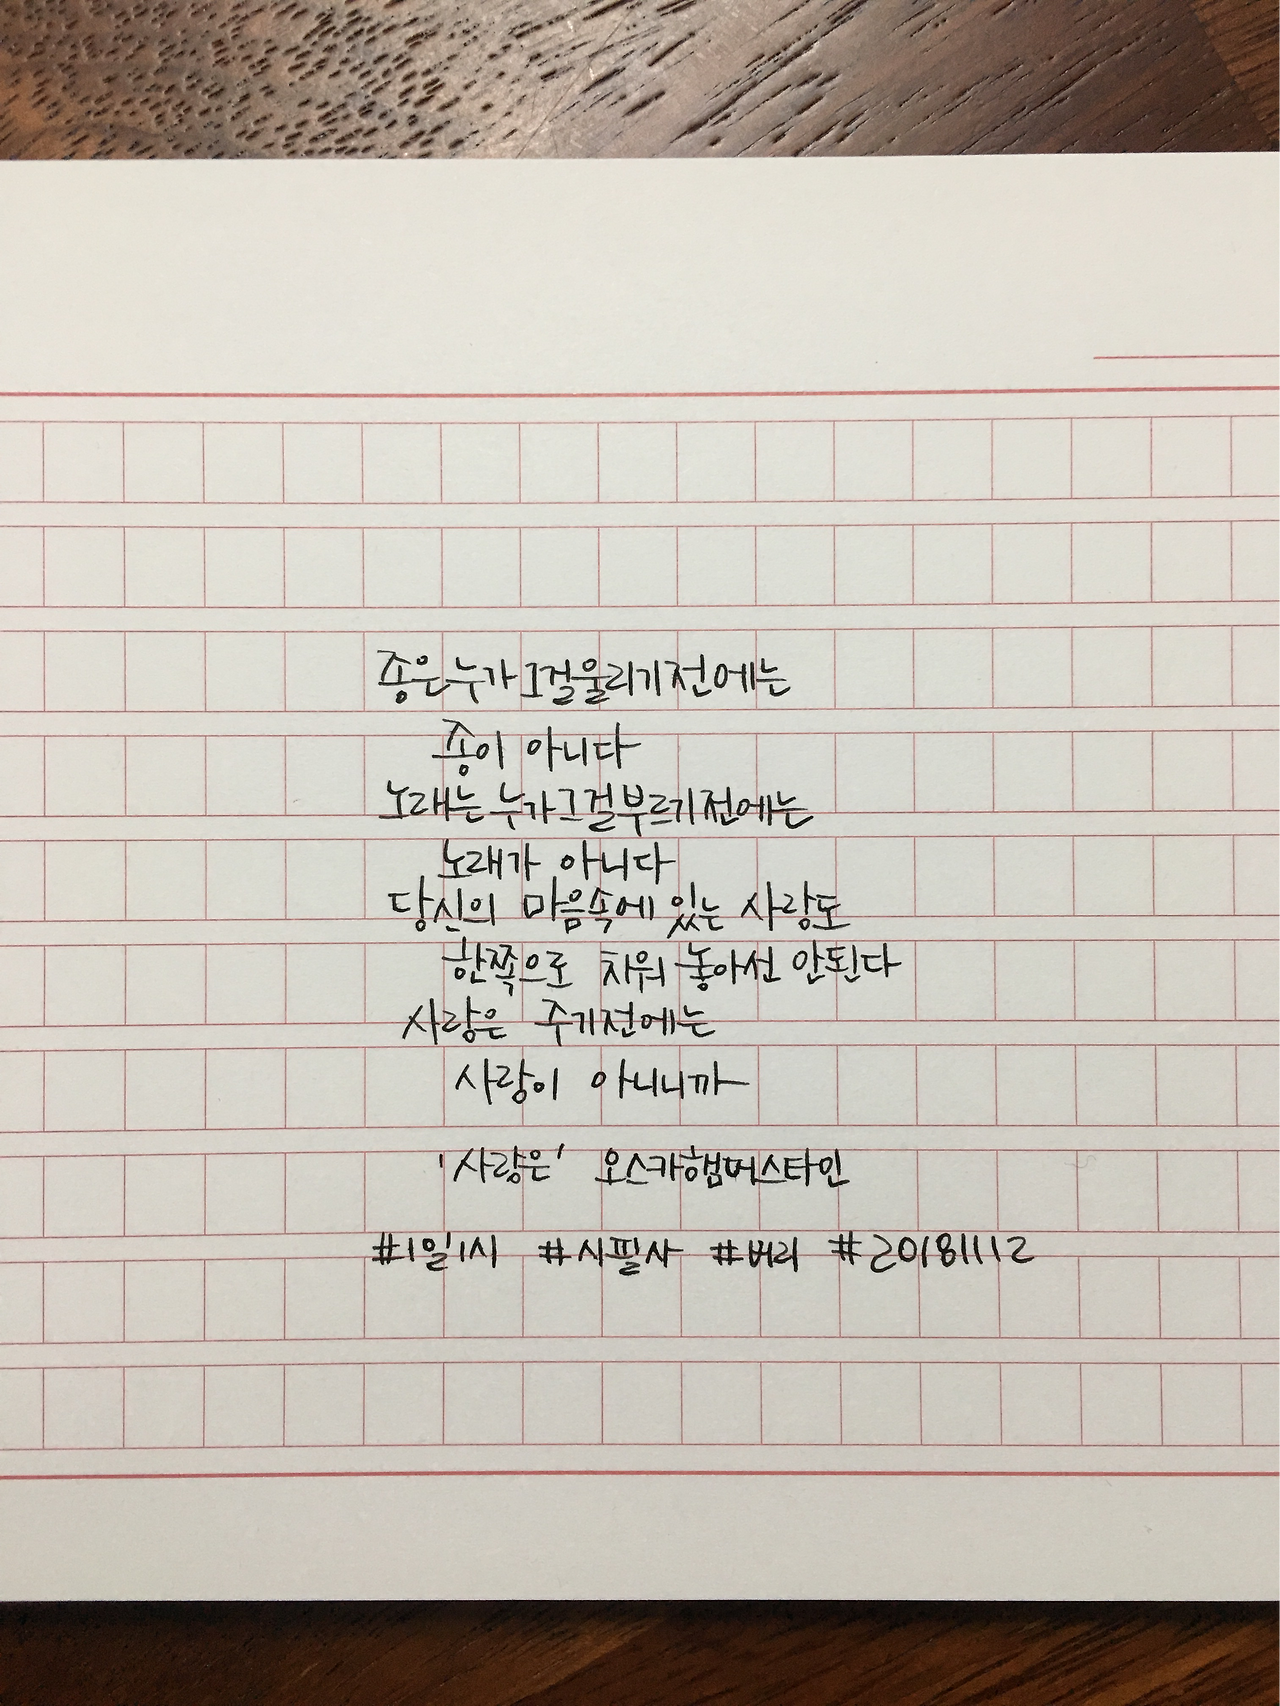 종은 누가 그걸 울리기 전에는
종이 아니다
노래는 누가 그걸 부르기 전에는
노래가 아니다
당신의 마음속에 있는 사랑도
한쪽으로 치워 놓아선 안된다
사랑은 주기전에는
사랑이 아니니까
'사랑은' 오스카햄머스타인
#1일1시 #시필사 #버리 #20181112